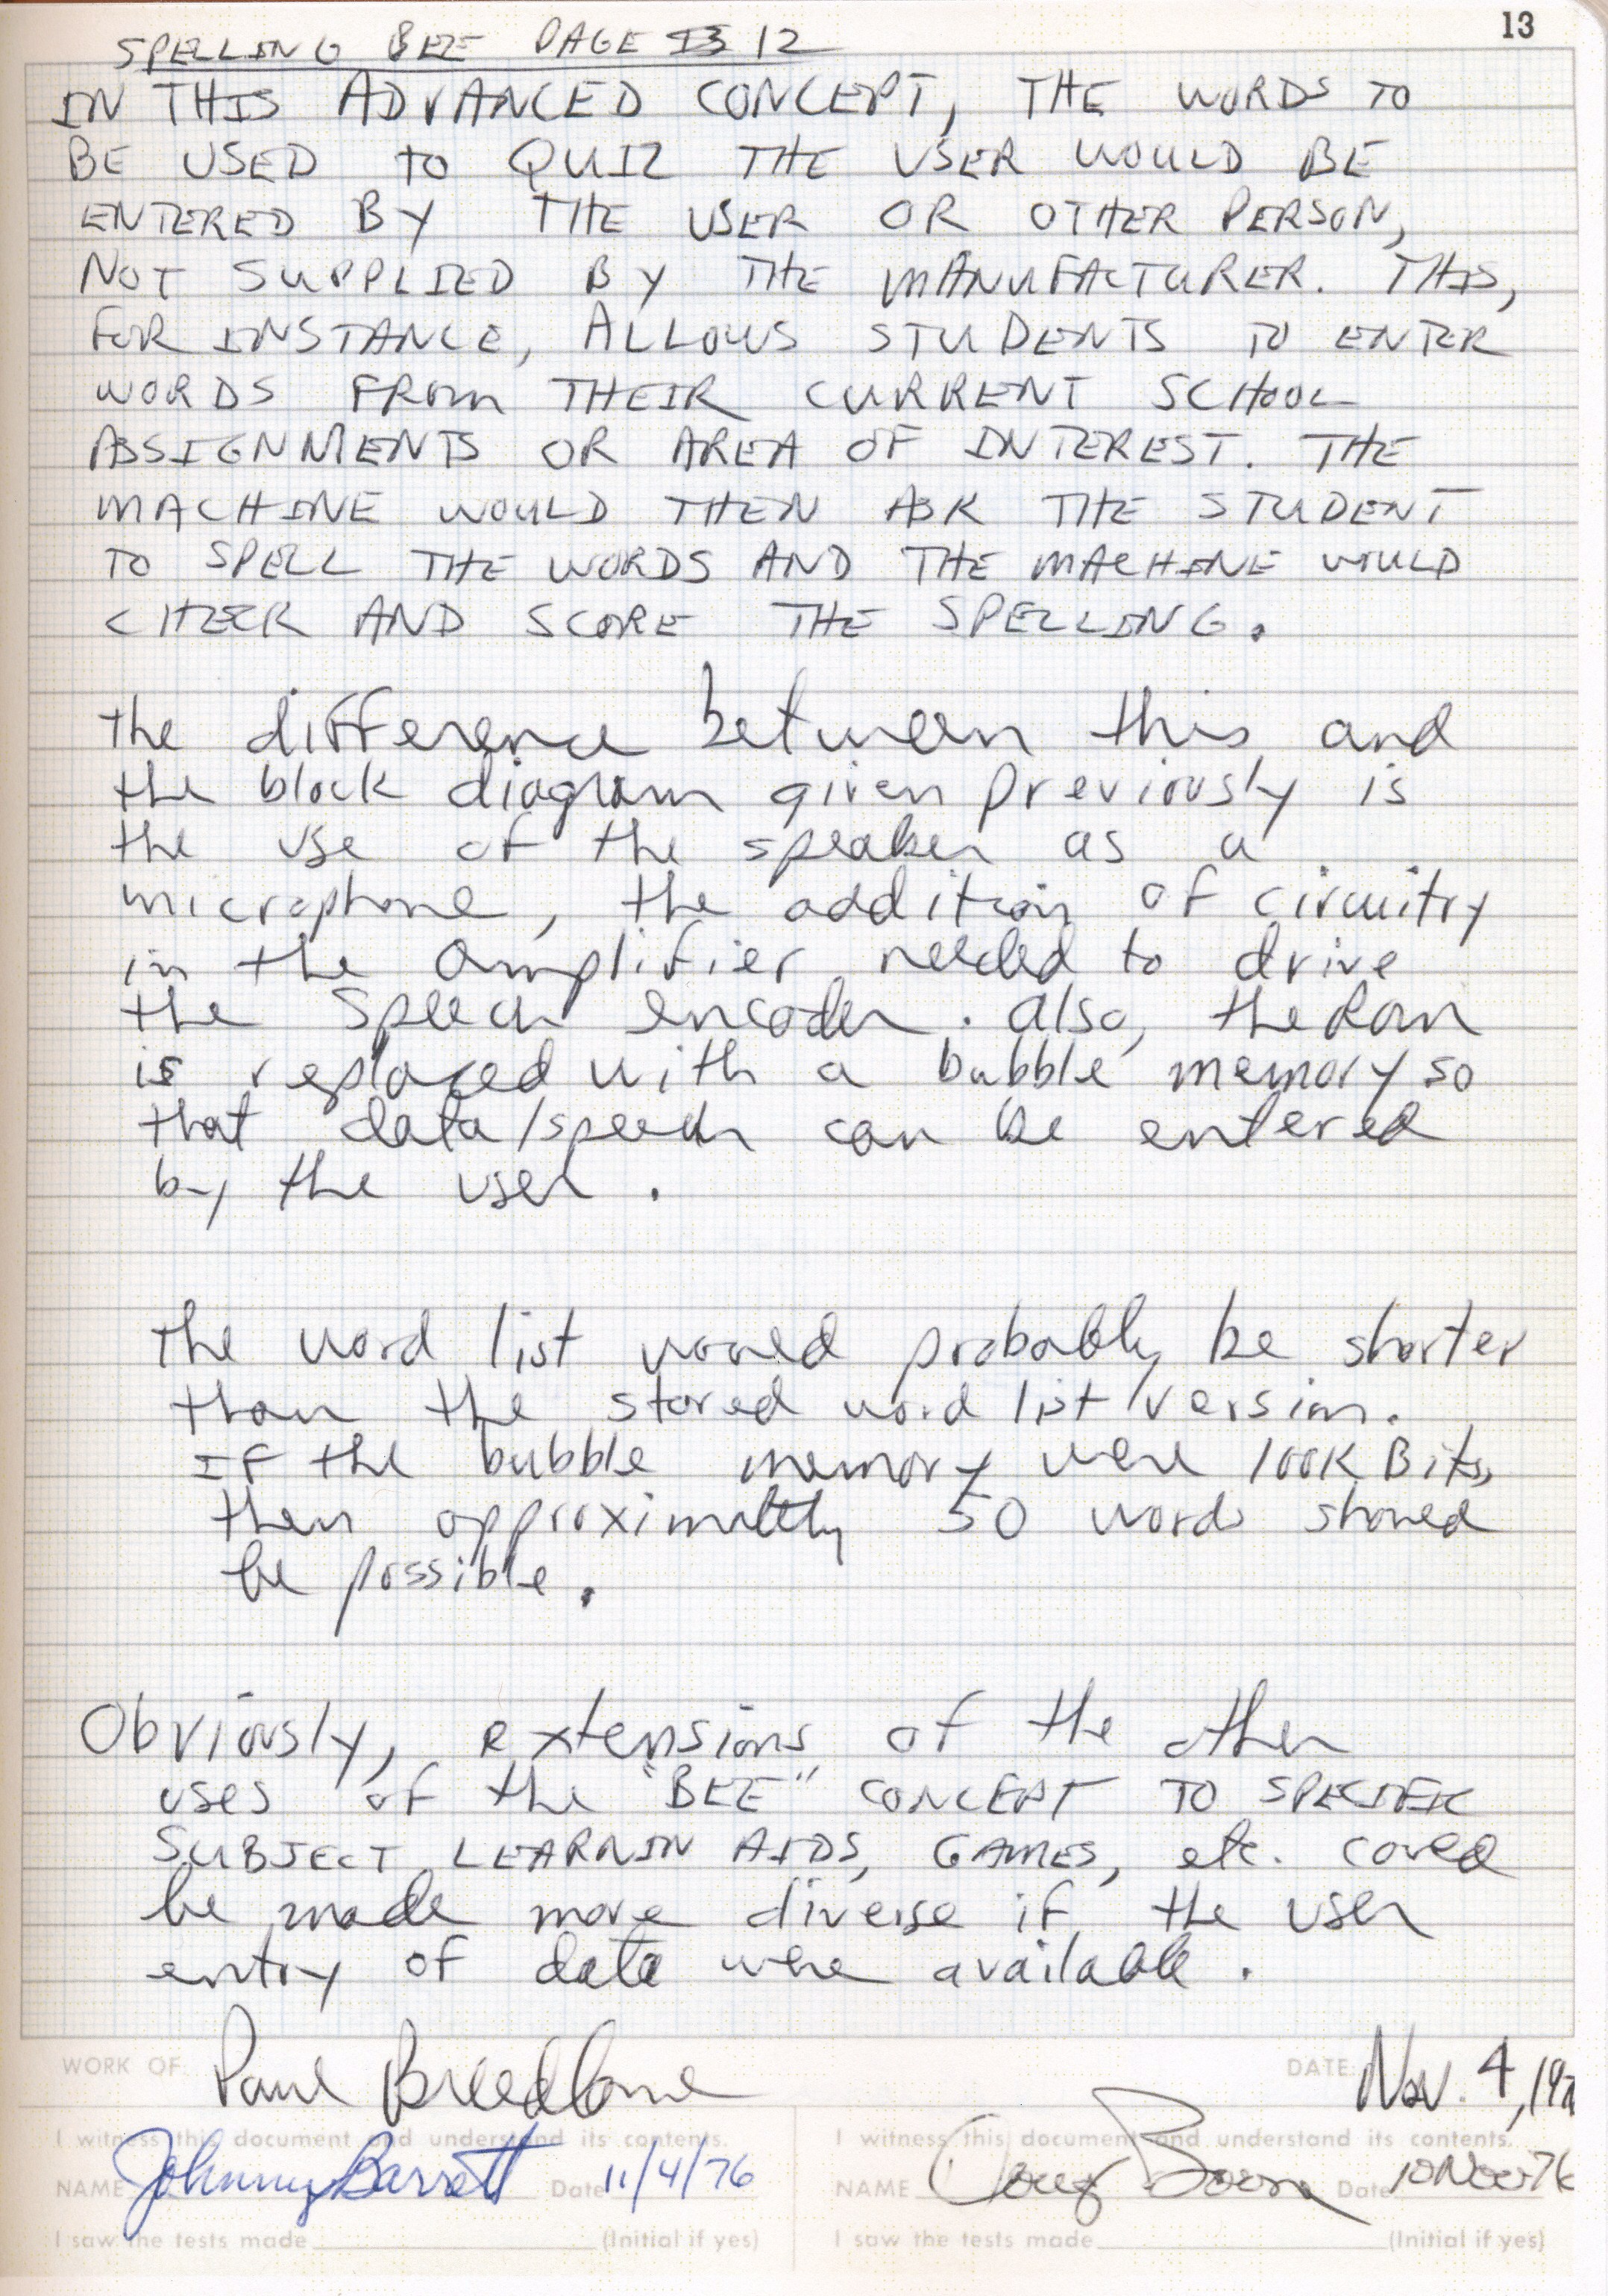 13
SPELLING BEE PAGE 12
IN THIS ADVANCED CONCEPT, THE WORDS TO
BE USED TO QUIZ THE USER WOULD BE
ENTERED BY THE USER OR OTHER PERSON,
NOT SUPPLIED BY THE MANUFACTURER. THIS,
FOR INSTANCE, ALLOWS STUDENTS TO ENTER
WORDS FROM THEIR CURRENT SCHOOL
ASSIGNMENTS OR AREA OF INTEREST. THE
MACHINE WOULD THEN ASK THE STUDENT
TO SPELL THE WORDS AND THE MACHINE WOULD
CHECK AND SCORE THE SPELLING.
the difference between this and
the block diagram given previously is
the use of the speaker as a
microphone, the addition of circuitry
in the amplifier needed to drive
the speech encoder. also, the Rom
is replaced with a bubble memory so
that data/speech can be entered
by the user.
the word list would probably be shorter
than the stored word list version.
IF the bubble memory were 100K Bits,
then approximately 50 words should
be possible.
Obviously, extensions of the other
uses of the "BEE" CONCEPT TO SPECIFIC
SUBJECT LEARNIN AIDS, GAMES, etc. could
be made more diverse if the user
entry of data were available.
WORK OF: Paul Breedlove DATE: Nov. 4, 197
I witness this document and understand its contents.
NAME Johnny Barrett Date 11/4/76
I saw the tests made (Initial if yes)
I witness this document and understand its contents.
NAME Doug Date 10 Nov 76
I saw the tests made (Initial if yes)